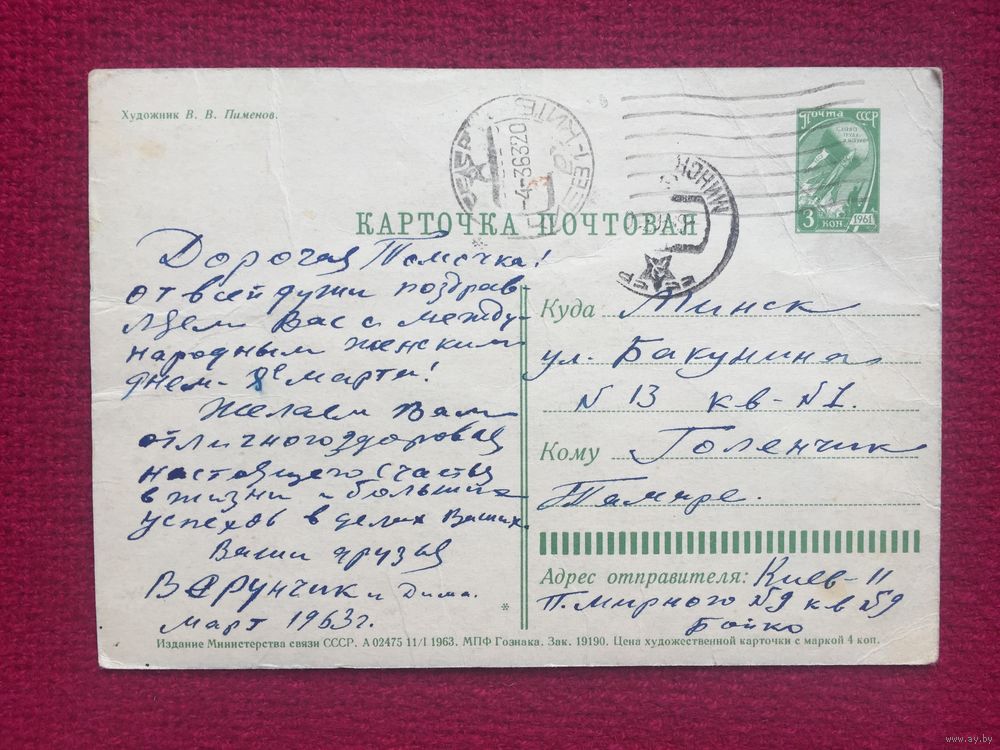 Художник В. В. Пименов.
ПОЧТА СССР
3 КОП.
1961
МИНСК
КАРТОЧКА ПОЧТОВАЯ
Дорогая Томочка!
от всей души поздрав-
ляем Вас с между-
народным женским
днем - 8е марта!
Желаем Вам
отличного здоровья
настоящего счастья
в жизни и больших
успехов в делах Ваших.
Ваши друзья
Верунчик и Дима.
март 1963 г.
Куда Минск
ул. Бакунина
N 13 кв-N 1.
Кому Голенчик
Тамаре.
Адрес отправителя: Киев-11
П. Мирного N9 кв N9
Бойко
Издание Министерства связи СССР. А 02475 11/I 1963. МПФ Гознака. Зак. 19190. Цена художественной карточки с маркой 4 коп.
www.ay.by